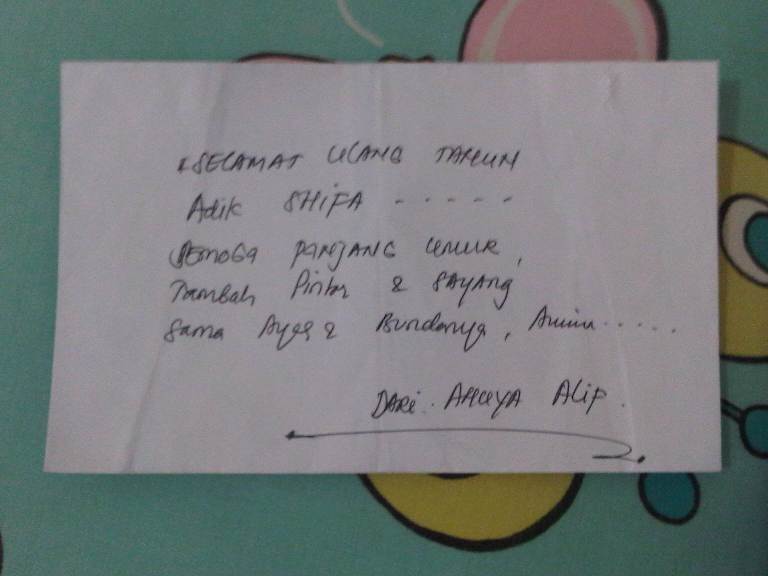 SELAMAT ULANG TAHUN
Adik SHIFA - - - - -
SEMOGA PANJANG UMUR,
Tambah Pintar & SAYANG
Sama Ayah & Bundanya, Amiin.....
DARI. AHUYA Alip.